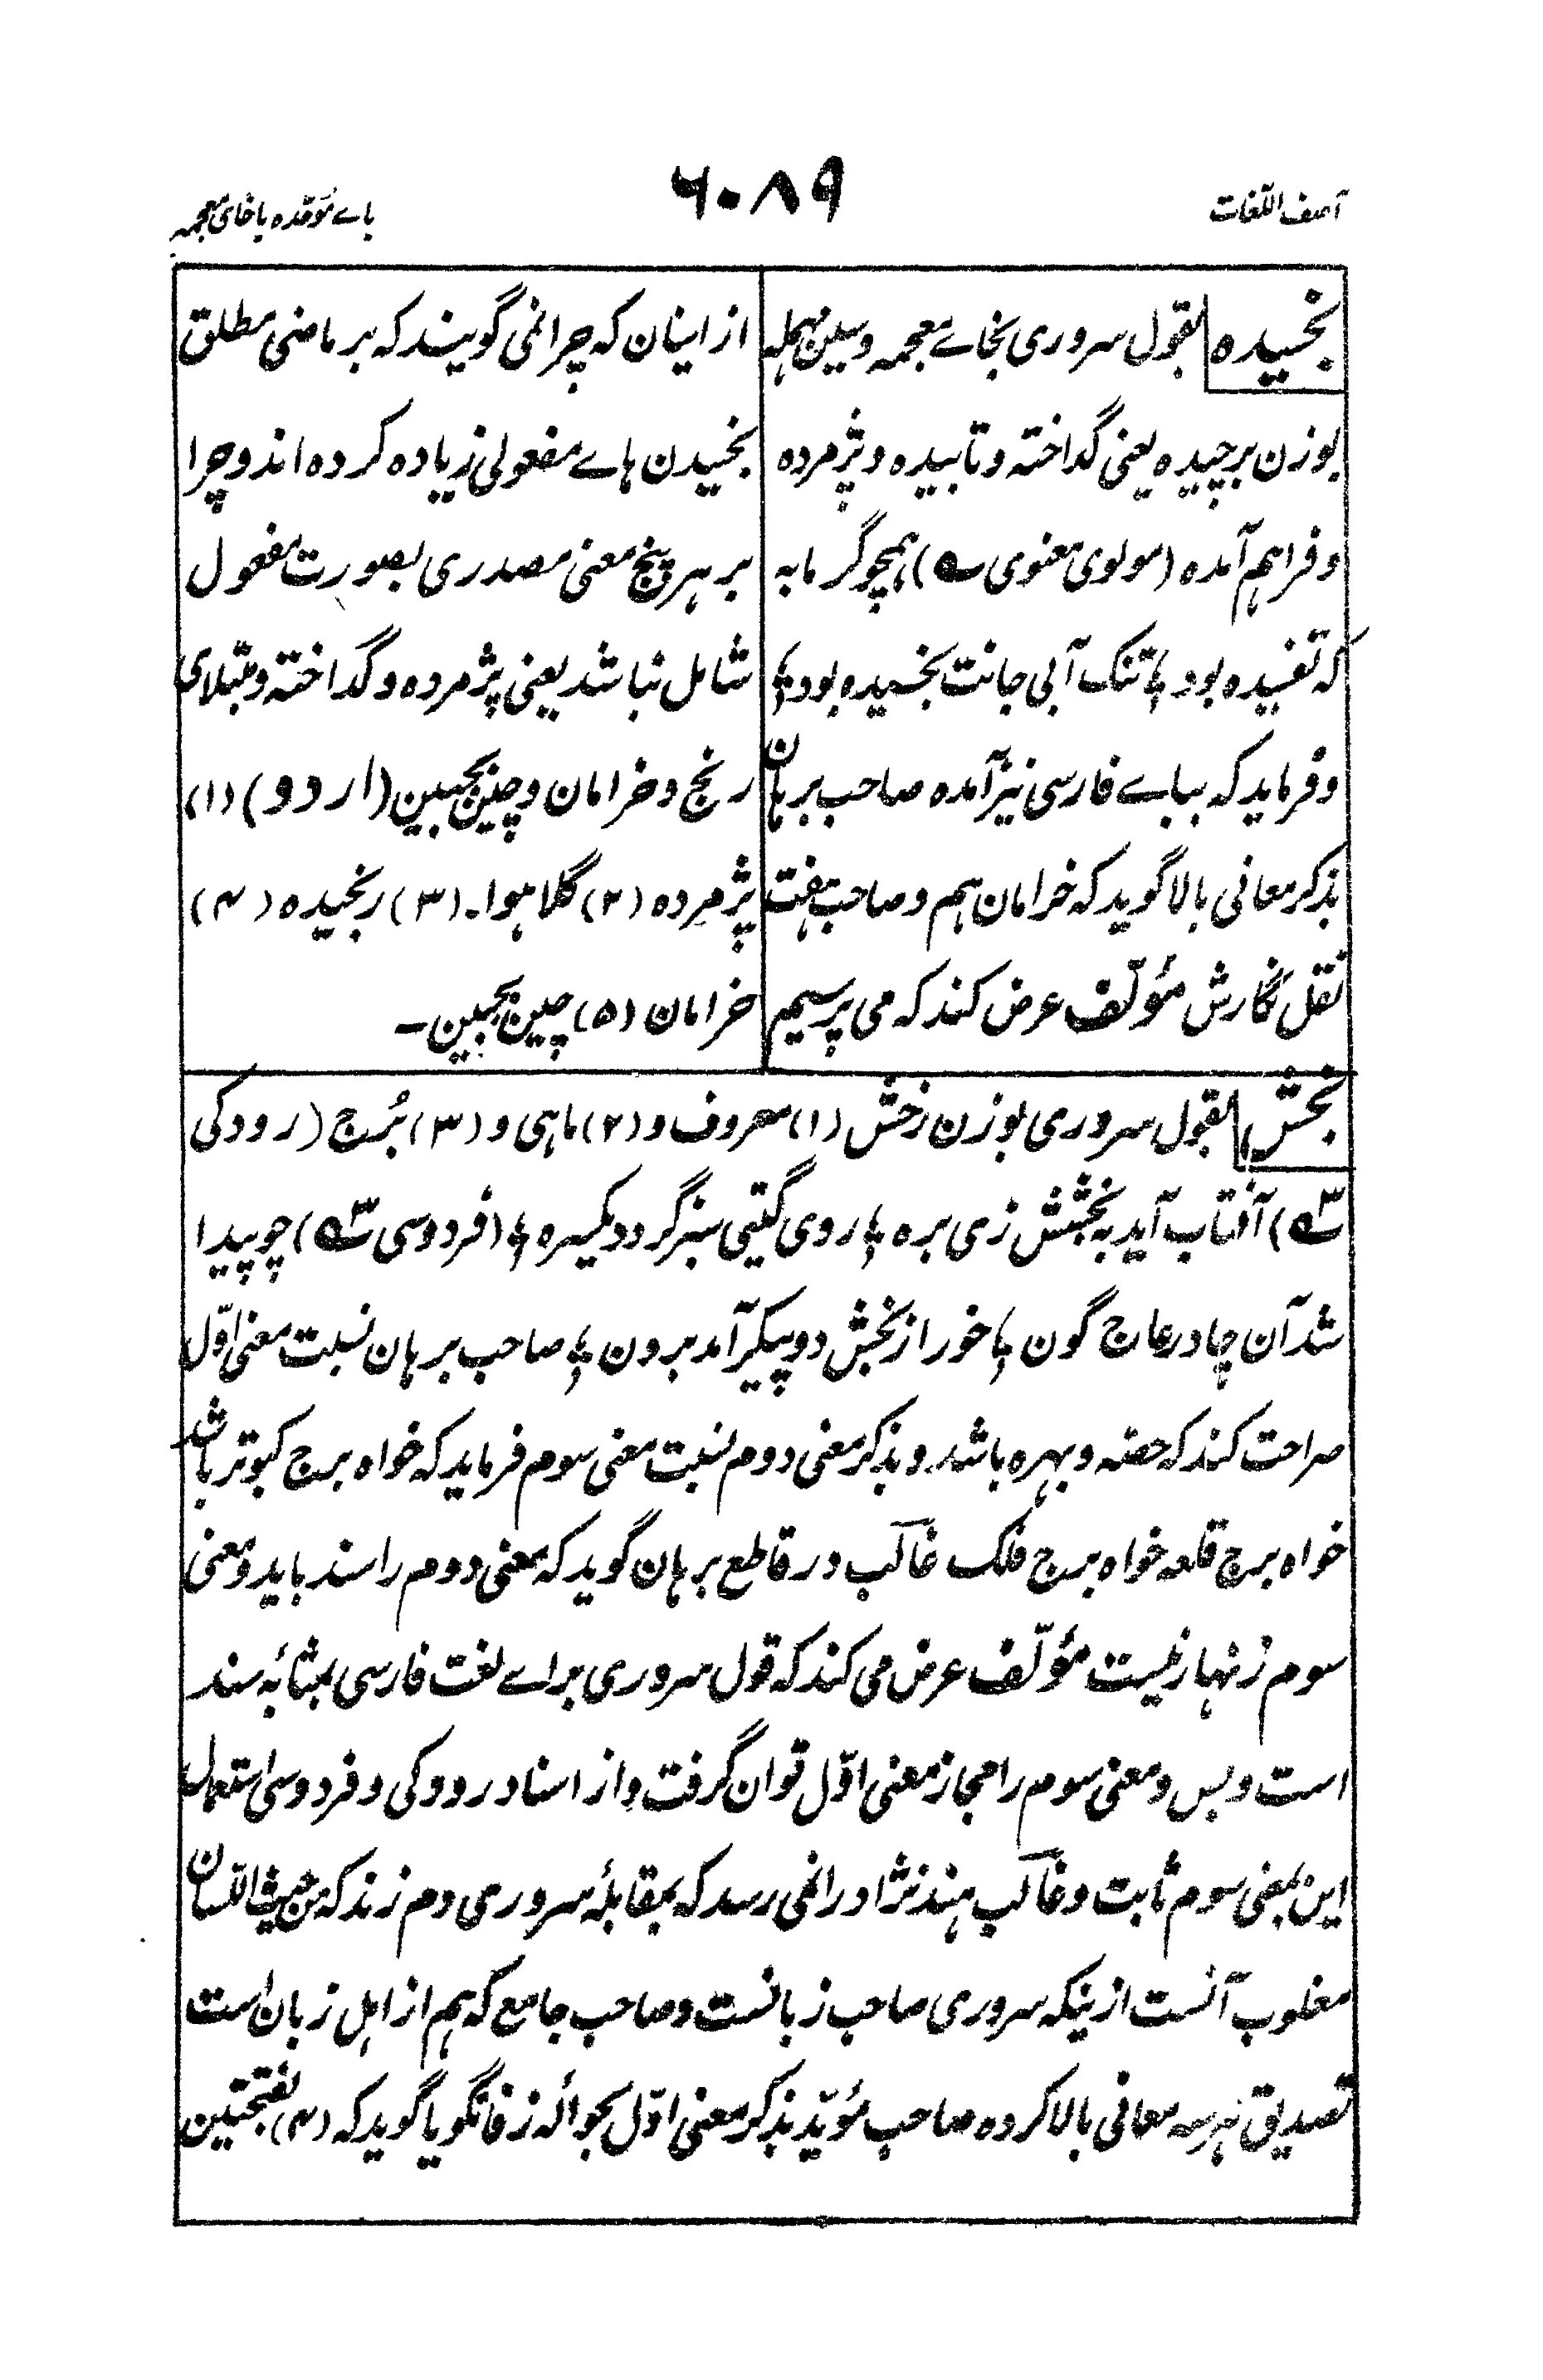 آصف اللّغات
۶۰۸۹
باے موحّدہ با خاى معجمہ
بخسیدہ بقول سروری بخاے معجمہ و سین مہملہ
بوزن برچیدہ یعنی گداختہ و تابیدہ و پژمردہ
و فراہم آمدہ (مولوی معنوی ؎) ہمچو گرمابہ
کہ تفسیدہ بود ؛ تنگ آبی جانت بخسیدہ بود ؛
و فرماید کہ بباے فارسی نیز آمدہ صاحب برہان
بذکر معانی بالا گوید کہ خرامان ہم و صاحب ہفت
نقل نگارش مؤلّف عرض کند کہ می پرسیم
از اینان کہ چرا نمی گویند کہ بر ماضی مطلق
بخسیدن ہاے مفعولی زیادہ کردہ اند و چرا
بر ہر پنج معنی مصدری بصورت مفعول
شامل نباشد یعنی پژمردہ و گداختہ و مبتلای
رنج و خرامان و چین بجبین (اردو) (۱)
پژمردہ (۲) گلا ہوا۔ (۳) رنجیدہ (۴)
خرامان (۵) چین بجبین ۔
بخش بقول سروری بوزن رخش (۱) معروف و (۲) ماہی و (۳) بُرج (رودکی
؎) آفتاب آید بہ بخشش زی برہ ؛ روی گیتی سبز گردد یکسرہ ؛ (فردوسی ؎) چو پیدا
شد آن چادر عاج گون ؛ خور از بخش دو پیکر آمد برون ؛ صاحب برہان نسبت معنی اوّل
صراحت کند کہ حصہ و بہرہ باشد و بذکر معنی دوم نسبت معنی سوم فرماید کہ خواہ برج کبوتر باشد
خواہ برج قلعہ خواہ برج فلک غالب در قاطع برہان گوید کہ معنی دوم را سند باید و معنی
سوم زنہار نیست مؤلّف عرض می کند کہ قول سروری براے لغت فارسی بمثابۂ سند
است و بس و معنی سوم را مجاز معنی اوّل توان گرفت و از اسناد رودکی و فردوسی استعمال
این بمعنی سوم ثابت و غالب ہند نژاد را نمی رسد کہ بمقابلۂ سروری دم زند کہ من حیث اللّسان
مغلوب آنست ازینکہ سروری صاحب زبانست و صاحب جامع کہ ہم از اہل زبان است
تصدیق ہر سہ معانی بالا کردہ صاحب مؤیّد بذکر معنی اوّل بحوالۂ زفانگویا گوید کہ (۴) بفتحتین